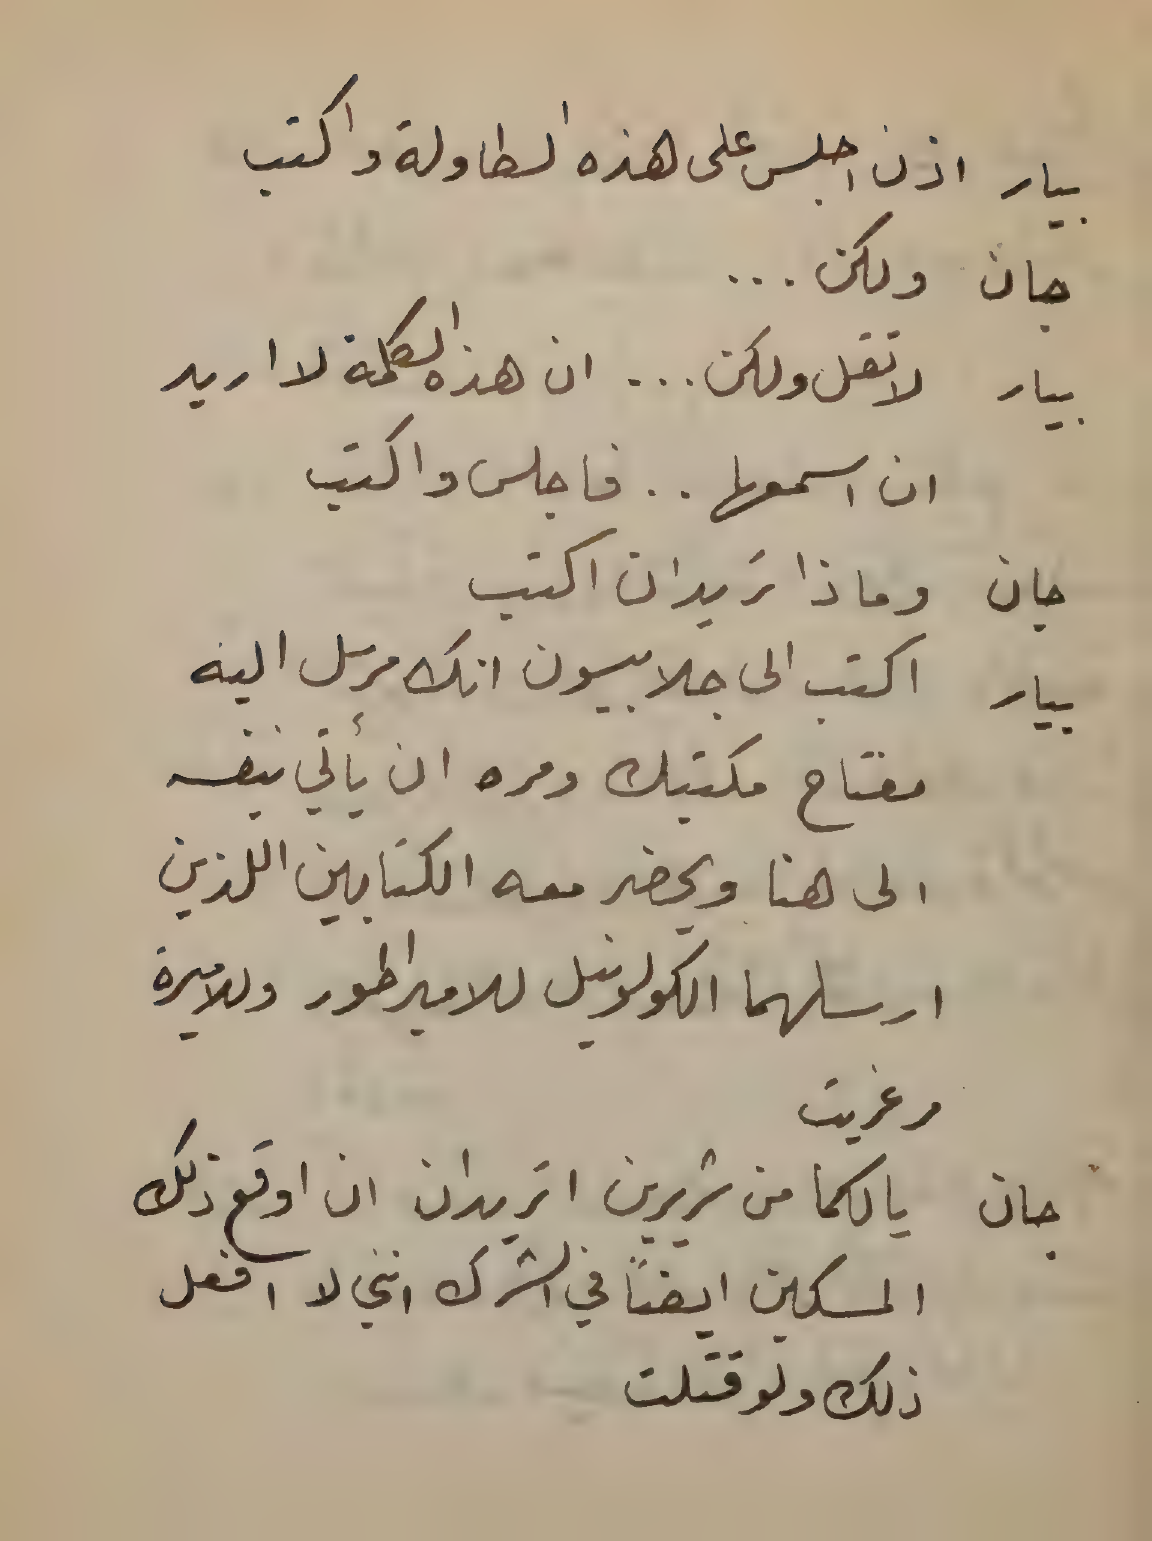 بيار اذن اجلس على هذه الطاولة واكتب
جان ولكن ...
بيار لا تقل ولكن ... ان هذه الكلمة لا اريد
ان اسمعها .. فاجلس واكتب
جان وماذا تريد ان اكتب
بيار اكتب الى جلابيسون انك مرسل اليه
مفتاح مكتبك ومره ان يأتي بنفسه
الى هنا ويحضر معه الكتابين اللذين
ارسلهما الكولونيل للامبراطور وللاميرة
مرغريت
جان يا لكما من شريرين اتريدان ان اوقع ذلك
المسكين ايضاً في الشرك انني لا افعل
ذلك ولو قتلت